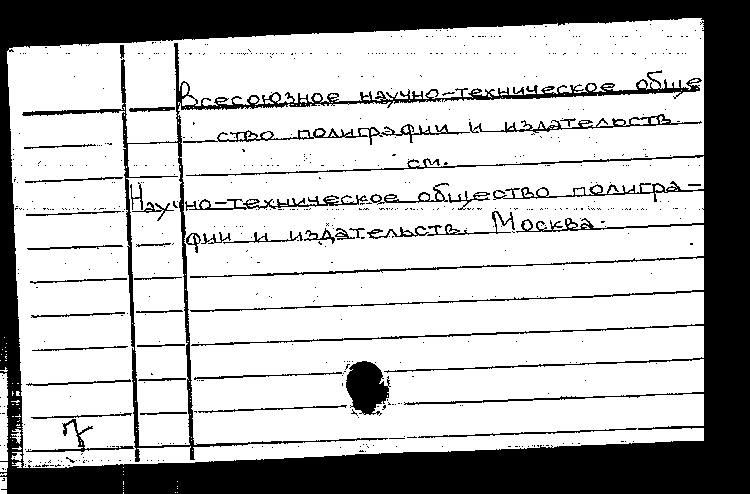 Всесоюзное научно-техническое обще
ство полиграфии и издательств
см.
Научно-техническое общество полигра-
фии и издательств. Москва.